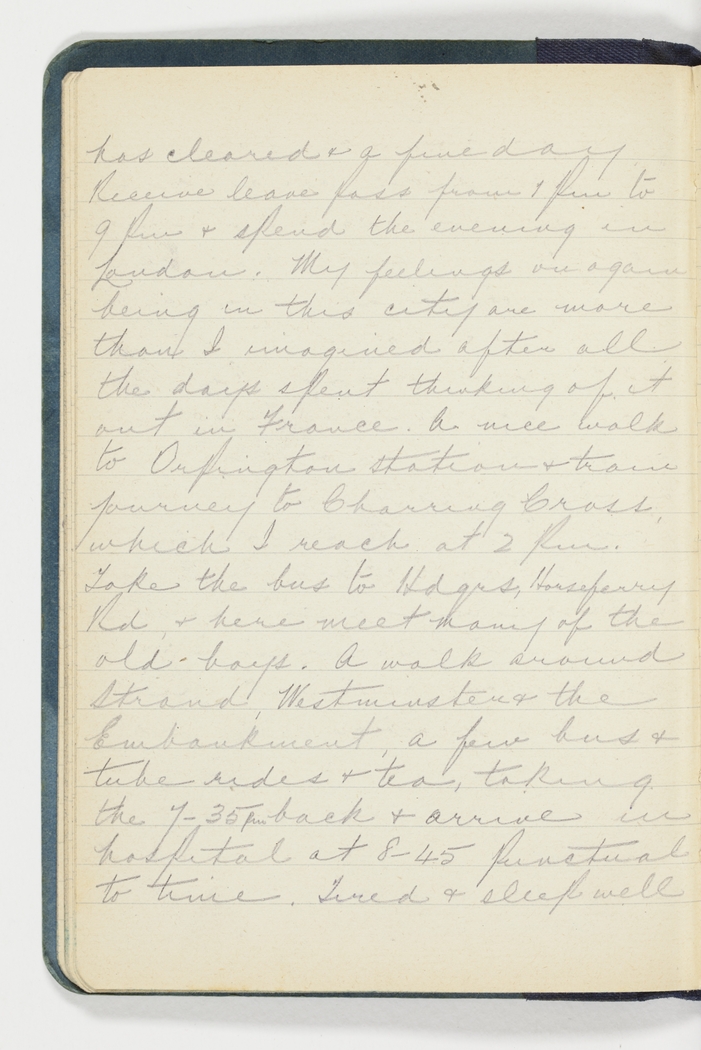 has cleared & a fine day
Receive leave pass from 1 pm to
9 pm & spend the evening in
London. My feelings on again
being in this city are more
than I imagined after all
the days spent thinking of it
out in France. A nice walk
to Orpington station & train
journey to Charring Cross,
which I reach at 2 pm.
Take the bus to Hdqrs, Horseferry
Rd, & here meet many of the
old boys. A walk around
Strand, Westminster & the
Embankment, a few bus &
tube rides & tea, taking
the 7-35pm back & arrive in
hospital at 8-45 punctual
to time. Tired & sleep well